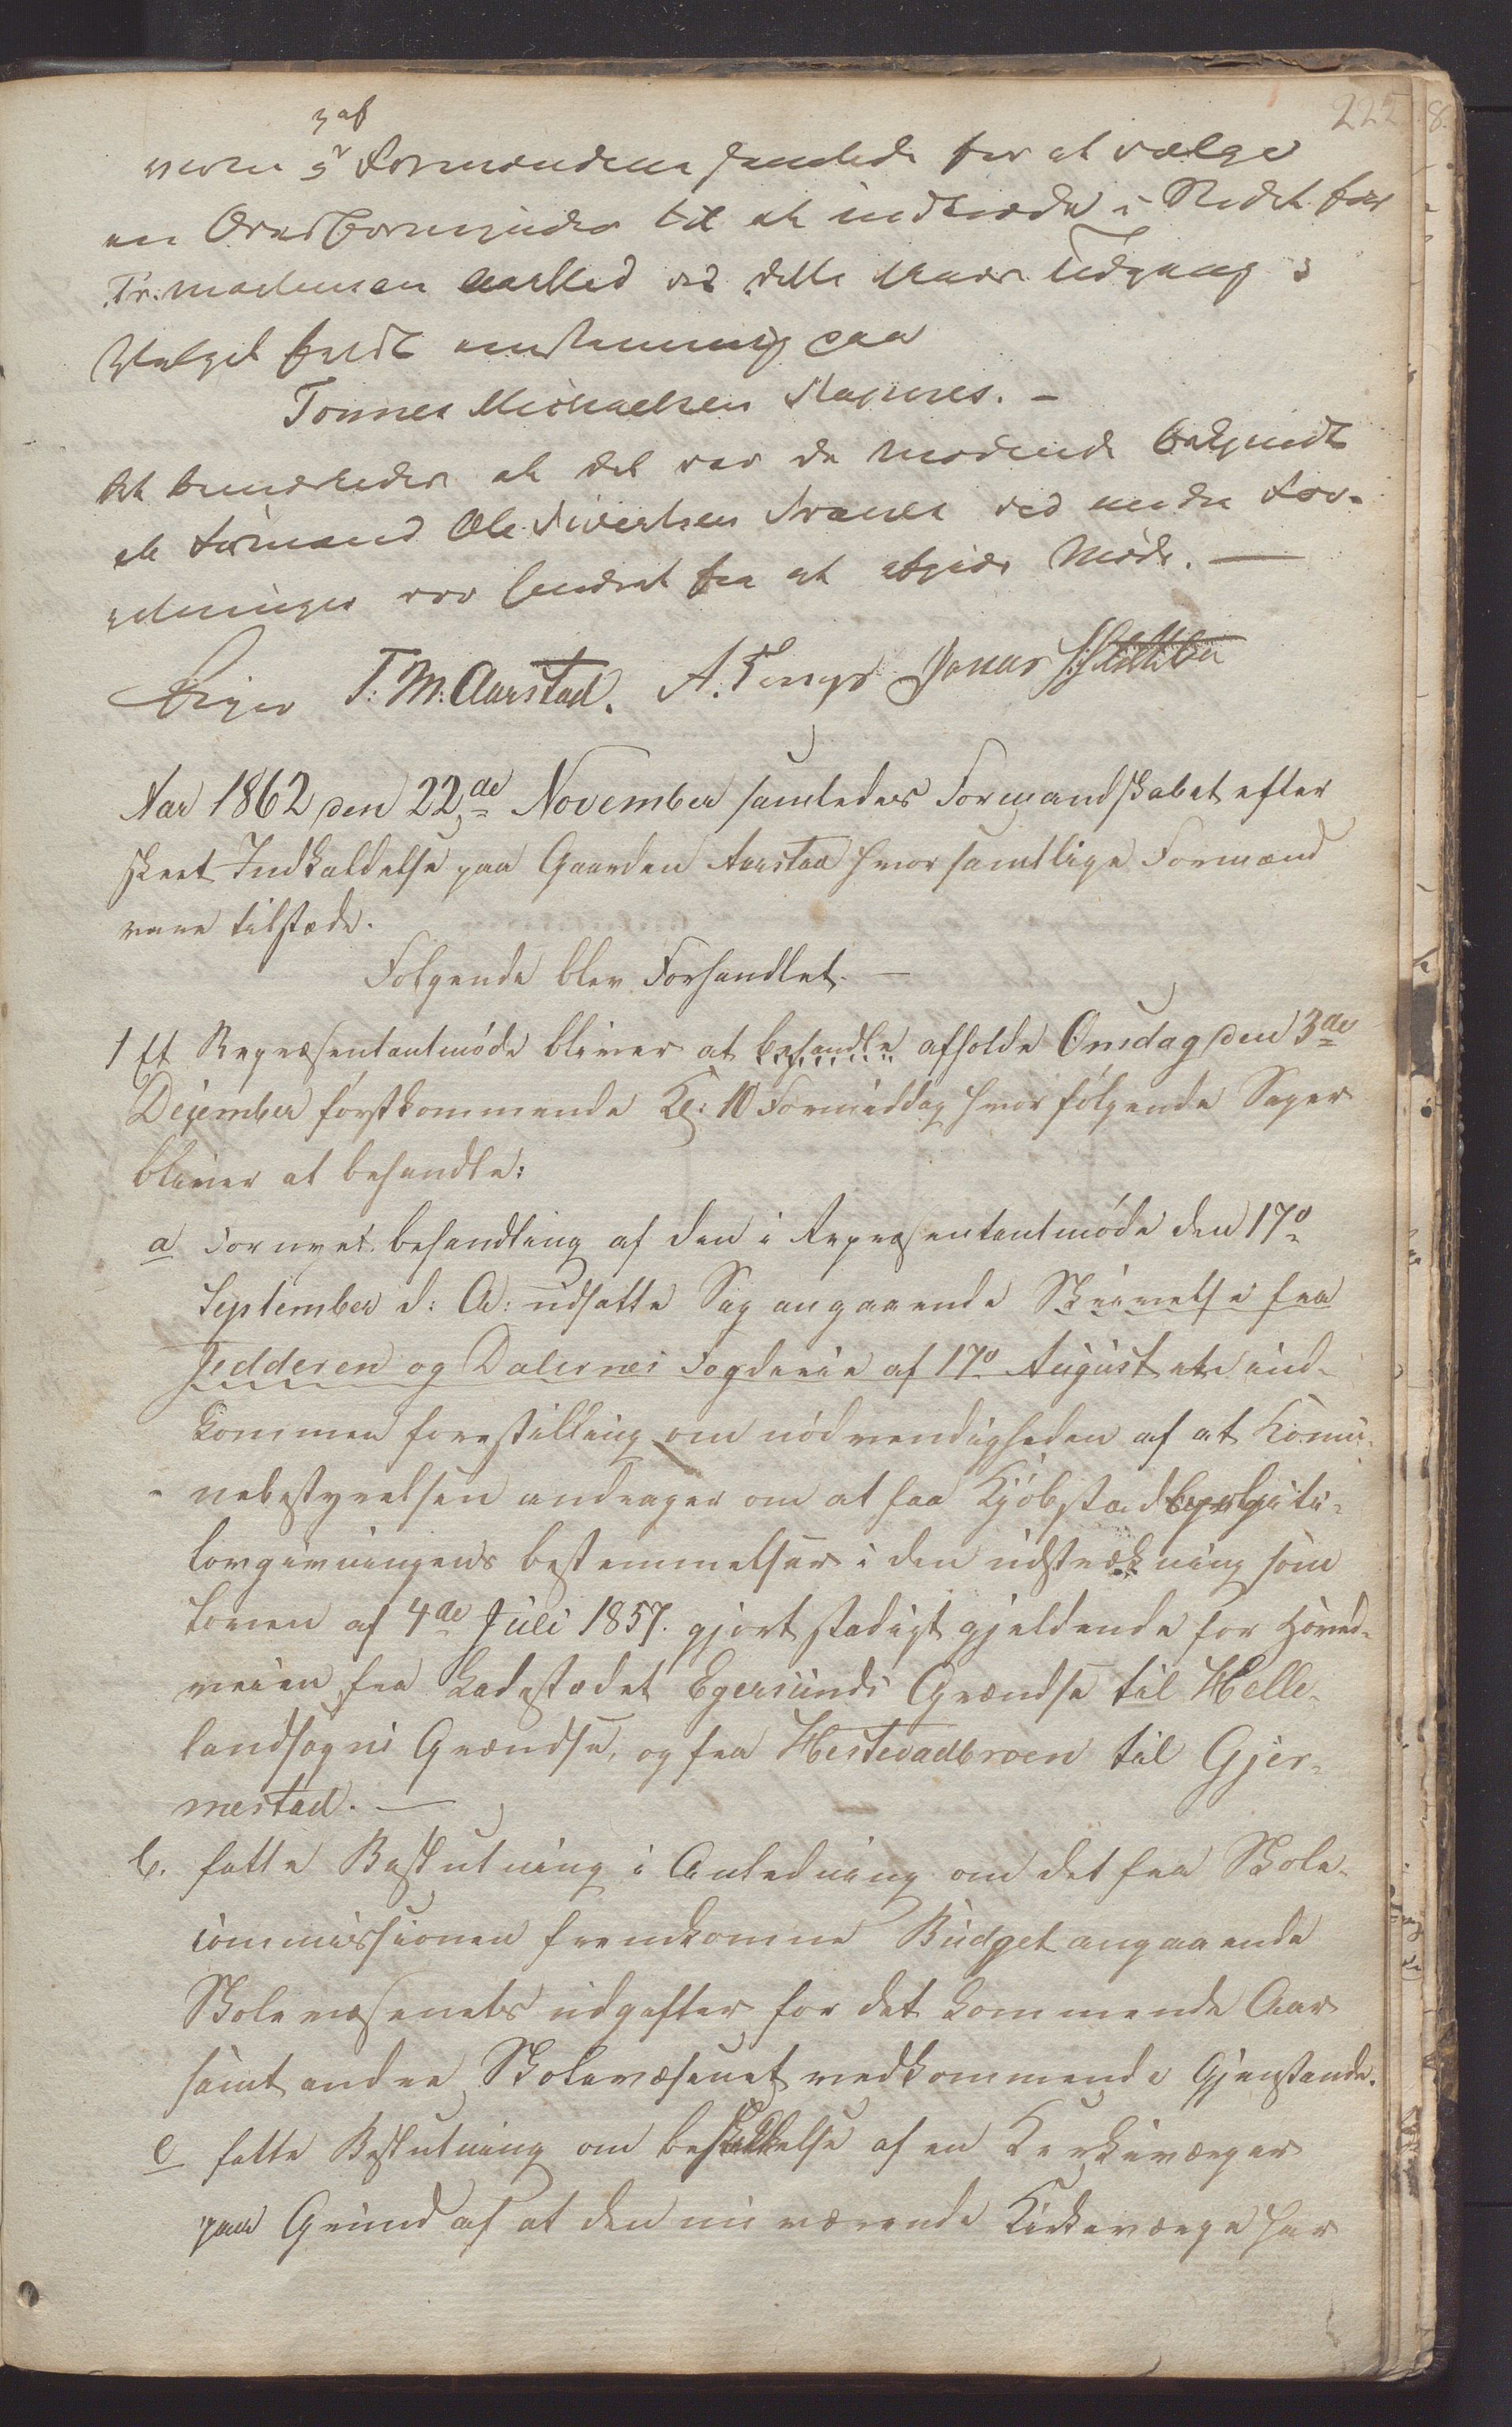 225
3 af
Formændene samlede for at vælge
en Overformynder til at indtræde i Stedet for
Tr. Aarstad ved dette Aars Udgang
Valget faldt enstemmig paa
Tønnes Michaelsen
Det bemærkedes at det var de mødende bekjendt
at Formand Ole Sivertsen ved andre For-
retninger var hindret fra at afgive Møde. —
T: M: Aarstad. A. Tengs Jonas
Aar 1862 den 22de November samledes Formandskabet efter
skeet Indkaldelse paa Gaarden Aarstad hvor samtlige Formænd
vare tilstæde.
Følgende blev Forhandlet. —
1 Et Repræsentantmøde bliver at behandle afholde Onsdag den 3de
Dejember førstkommende Kl: 10 Formiddag hvor følgende Sager
bliver at behandle:
a Fornyet behandling af den i Repræsentantmøde den 17o
September d: A: udsatte Sag angaaende Skrivelse fra
Jedderen og Dalernes Fogderie af 17o August indkommen
forestilling om nødvendigheden af at Komu-
nebestyrelsen andrager om at faa Kjøbstad
lovgivningens bestemmelser i den udstrækning som
Loven af 4de Juli 1857. gjort stadigt gjeldende for Hoved-
veien fra Ladestædet Egersunds Grændse til Helle-
landsogns Grændse, og fra Hestevadbroen til Gjer-
mestad. —
b. fatte Beslutning i Anledning om det fra Skole-
commissionen fremkomne Budget angaaende
Skolevæsenets udgifter for det kommende Aar
samt andre Skolevæsenet vedkommende Gjenstande.
c fatte Beslutning om beskikkelse af en Kerkeværger
paa Grund af at den nu værende Kirkeværge har